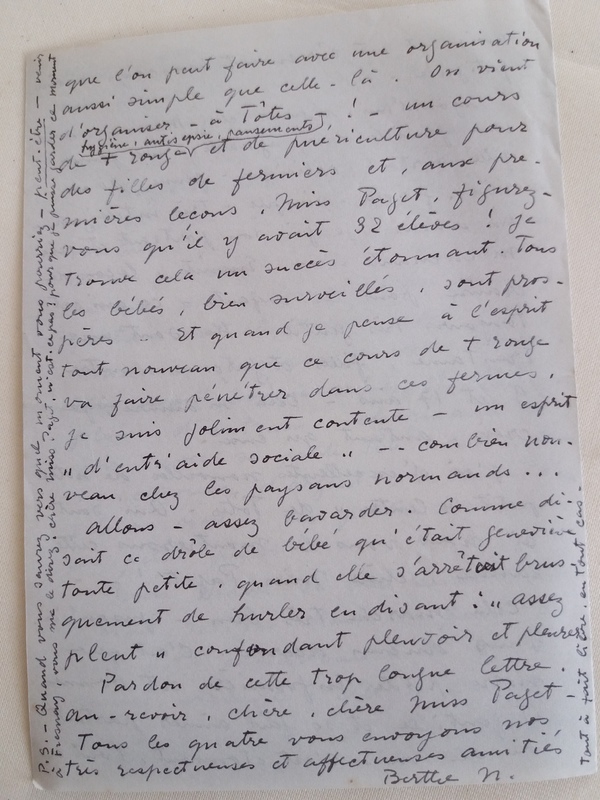 que l'on peut faire avec une organisation
aussi simple que celle-là. On vient
d'organiser - à Tôtes - ! - un cours
hygiène, antisepsie, pansements
de + rouge et de puériculture pour
des filles de fermiers et, aux pre-
mières leçons, Miss Paget, figurez-
vous qu'il y avait 32 élèves ! Je
trouve cela un succès étonnant. Tous
les bébés, bien surveillés, sont pros-
pères .. Et quand je pense à l'esprit
tout nouveau que ce cours de + rouge
va faire pénétrer dans ces fermes,
je suis joliment contente - un esprit
" d'entr'aide sociale " -- combien nou-
veau chez les paysans normands...
allons - assez bavarder. Comme di-
sait ce drôle de bébé qu'était geneviève
toute petite, quand elle s'arrêtait brus-
quement de hurler en disant : " assez
pleut " confondant pleuvoir et pleurer
Pardon de cette trop longue lettre.
au-revoir, chère, chère Miss Paget -
Tous les quatre vous envoyons nos
très respectueuses et affectueuses amitiés
Berthe N.
P.S. - Quand vous saurez vers quel moment vous pourriez - peut-être - venir
à Fresnay, vous me le direz, chère Miss Paget, n'est-ce pas? pour que je puisse garder ce moment
tout à fait libre, en tout cas -